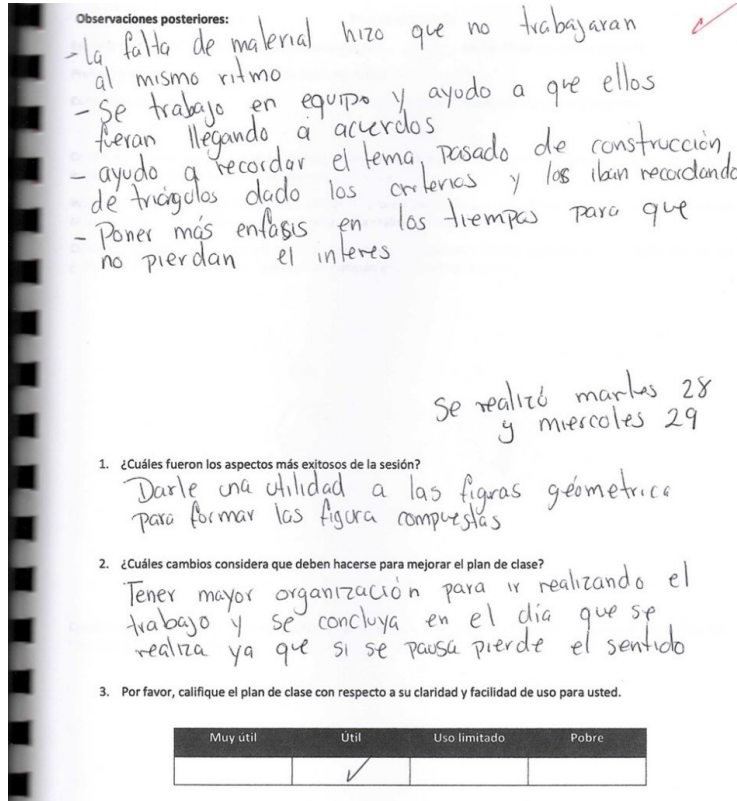 Observaciones posteriores:
- La falta de material hizo que no trabajaran
al mismo ritmo
- Se trabajo en equipo y ayudo a que ellos
fueran llegando a acuerdos
- ayudo a recordar el tema pasado de construcción
de triángulos dado los criterios y los iban recordando
- Poner más enfasis en los tiempos para que
no pierdan el interes
Se realizó martes 28
y miercoles 29
1. ¿Cuáles fueron los aspectos más exitosos de la sesión?
Darle una utilidad a las figuras géometrica
para formar las figura compuestas
2. ¿Cuáles cambios considera que deben hacerse para mejorar el plan de clase?
Tener mayor organización para ir realizando el
trabajo y se concluya en el día que se
realiza ya que si se pausa pierde el sentido
3. Por favor, califique el plan de clase con respecto a su claridad y facilidad de uso para usted.
Muy útil Útil Uso limitado Pobre